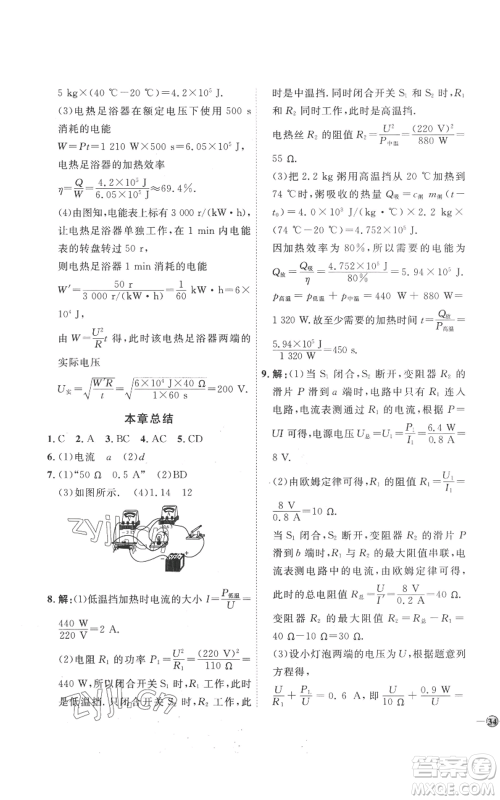 5 kg×(40 ℃-20 ℃)=4.2×10⁵ J
(3)电热足浴器在额定电压下使用 500 s
消耗的电能
W=Pt=1 210 W×500 s=6.05×10⁵ J
电热足浴器的加热效率
η=Q/W=4.2×10⁵ J/6.05×10⁵ J≈69.4%.
(4)由图知,电能表上标有 3 000 r/(kW·h),
电热足浴器单独工作,在 1 min 内电能表
的转盘转过 50 r,
则电热足浴器消耗的电能
W′=50 r/3 000 r/(kW·h)=1/60(kW·h)=6×
10⁴ J,
由 W=U²/R t 得,此时该电热足浴器两端的
实际电压
U实=√(W′R/t)=√(6×10⁴ J×40 Ω/1×60 s)=200 V.
本章总结
1. C 2. A 3. BC 4. AC 5. CD
6. (1)电流 a (2)d
7. (1)“50 Ω 0.5 A” (2)BD
(3)如图所示. (4)1.14 12
8. 解:(1)低温挡加热时电流的大小 I=P低温/U=
440 W/220 V=2 A.
(2)电阻 R₁ 的功率 P₁=U²/R₁=(220 V)²/110 Ω=
440 W,所以闭合开关 S₁,R₁ 工作,此时是
低温挡. 只闭合开关 S₂,R₂ 工作,此
时是中温挡. 同时闭合开关 S₁ 和 S₂,R₁
和 R₂ 同时工作,此时为高温挡.
电热丝 R₂ 的阻值 R₂=U²/P中温=(220 V)²/880 W=
55 Ω.
(3)把 2.2 kg 粥用高温挡从 20 ℃加热到
74 ℃时,粥吸收的热量 Q吸=c粥 m粥(t-
t₀)=4.752×10⁵ J.
因加热效率为 80%,所以需要的电能为
Q放=Q吸/η=4.752×10⁵ J/80%=5.94×10⁵ J.
P高温=P低温+P中温=440 W+880 W=
1 320 W.故需要的加热时间 t=Q放/P高温=
5.94×10⁵ J/1 320 W=450 s.
9. 解:(1)当 S₁ 闭合、S₂ 断开,变阻器的
滑片 P 滑到 a 端时,只有 R₁ 连入
电路,电流表测 R₁ 的电流,
R₁ 两端的电压 U₁=P₁/I₁=6.4 W/0.8 A=
8 V.
(2)由欧姆定律可得,R₁ 的阻值 R₁=U₁/I₁=
8 V/0.8 A=10 Ω.
当 S₁ 闭合、S₂ 断开,变阻器的滑片 P
滑到 b 端时,R₁ 与 R₂ 的最大阻值串联,电
流表测电路中的电流,由欧姆定律可得,此
时的总电阻值 R总=U/I′=8 V/0.2 A=40 Ω.
变阻器 R₂ 的最大阻值 R₂=R总-R₁=
40 Ω-10 Ω=30 Ω.
(3)设小灯泡两端的电压为 U,根据题意列
方程得,
U/R₁+P灯/U=0.6 A,即 U/10 Ω+0.9 W/U=
34
答案圈
MXQE.COM